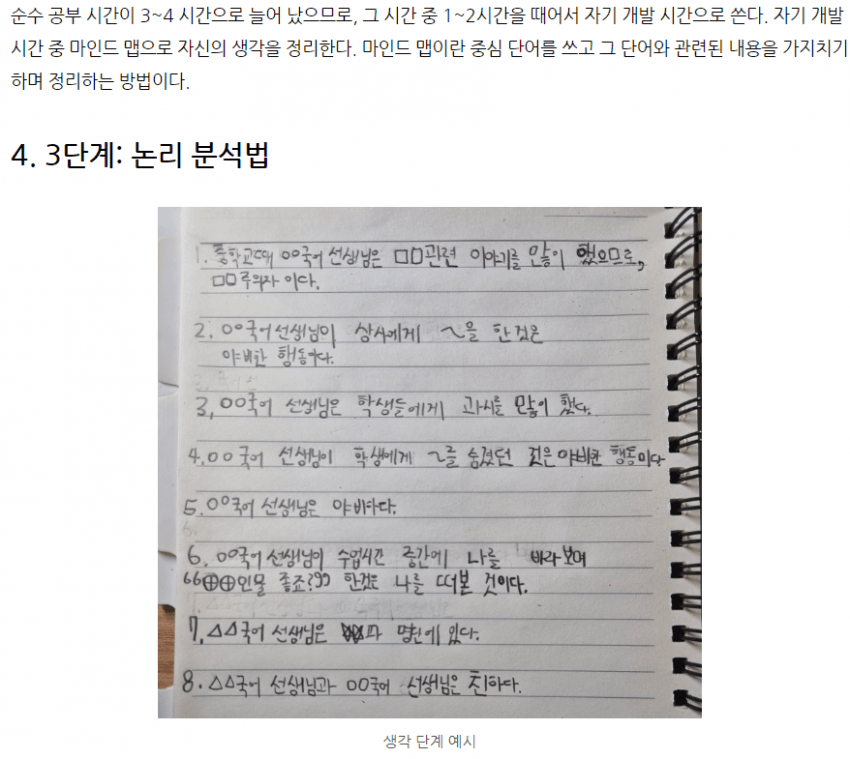 순수 공부 시간이 3~4 시간으로 늘어 났으므로, 그 시간 중 1~2시간을 때어서 자기 개발 시간으로 쓴다. 자기 개발
시간 중 마인드 맵으로 자신의 생각을 정리한다. 마인드 맵이란 중심 단어를 쓰고 그 단어와 관련된 내용을 가지치기
하며 정리하는 방법이다.
4. 3단계: 논리 분석법
1. 중학교때 ○○국어 선생님은 □□관련 이야기를 많이 했으므로,
□□주의자 이다.
2. ○○국어선생님이 상사에게 ~을 한 것은
야비한 행동이다.
3, ○○국어 선생님은 학생들에게 과시를 많이 했다.
4. ○○국어 선생님이 학생에게 ~를 숨겼던 것은 야비한 행동이다
5. ○○국어 선생님은 야비하다.
6. ○○국어선생님이 수업시간 중간에 나를 바라보며
"⊕⊕인물 좋죠?" 한것은 나를 떠본 것이다.
7, △△국어 선생님은 파 명단에 있다.
8. △△국어 선생님과 ○○국어 선생님은 친하다.
생각 단계 예시